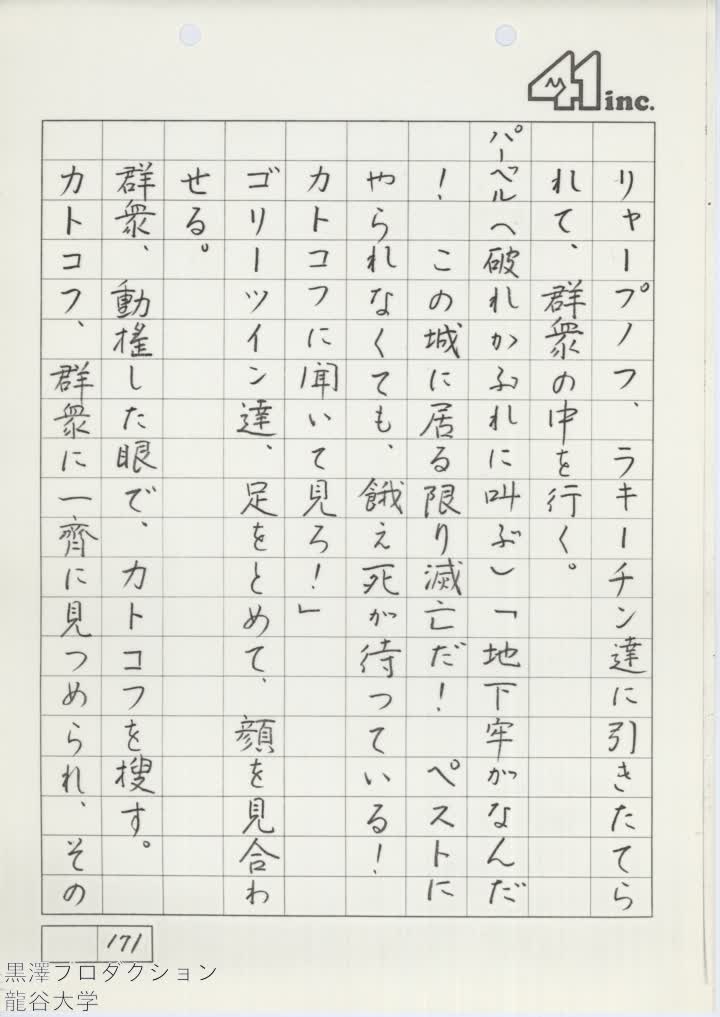 41 inc.
リャープノフ、ラキーチン達に引きたてら
れて、群衆の中を行く。
パーベル(破れかぶれに叫ぶ)「地下牢がなんだ
！　この城に居る限り滅亡だ！　ペストに
やられなくても、餓え死が待っている！
カトコフに聞いて見ろ！」
ゴリーツイン達、足をとめて、顔を見合わ
せる。
群衆、動揺した眼で、カトコフを捜す。
カトコフ、群衆に一齊に見つめられ、その
171
黒澤プロダクション
龍谷大学